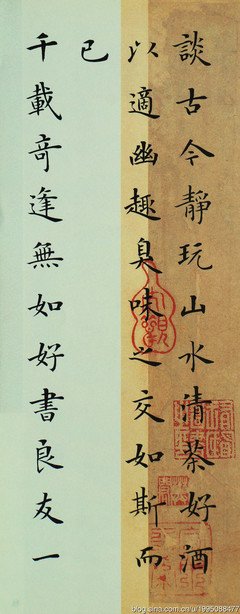 談古今靜玩山水清茶好酒
以適幽趣臭味之交如斯而
已
千載竒逢無如好書良友一
blog.sina.com.cn/u/1995088477